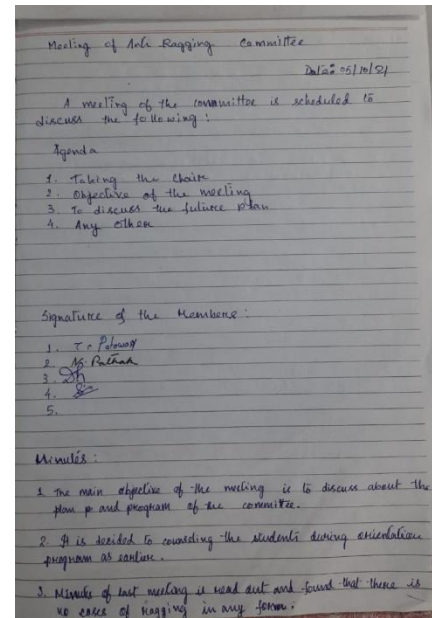 Meeting of Anti Ragging Committee
Date: 05/10/21
A meeting of the committee is scheduled to
discuss the following :
Agenda
1. Taking the Chair
2. Objective of the meeting
3. To discuss the future plan
4. Any other
Signature of the Members :
1. T. Patowary
2. Pathak
3.
4.
5.
Minutes :
1. The main objective of the meeting is to discuss about the
plan p and program of the committee.
2. It is decided to counseling the students during orientation
program as earlier.
3. Minutes of last meeting is read out and found that there is
no cases of ragging in any form.